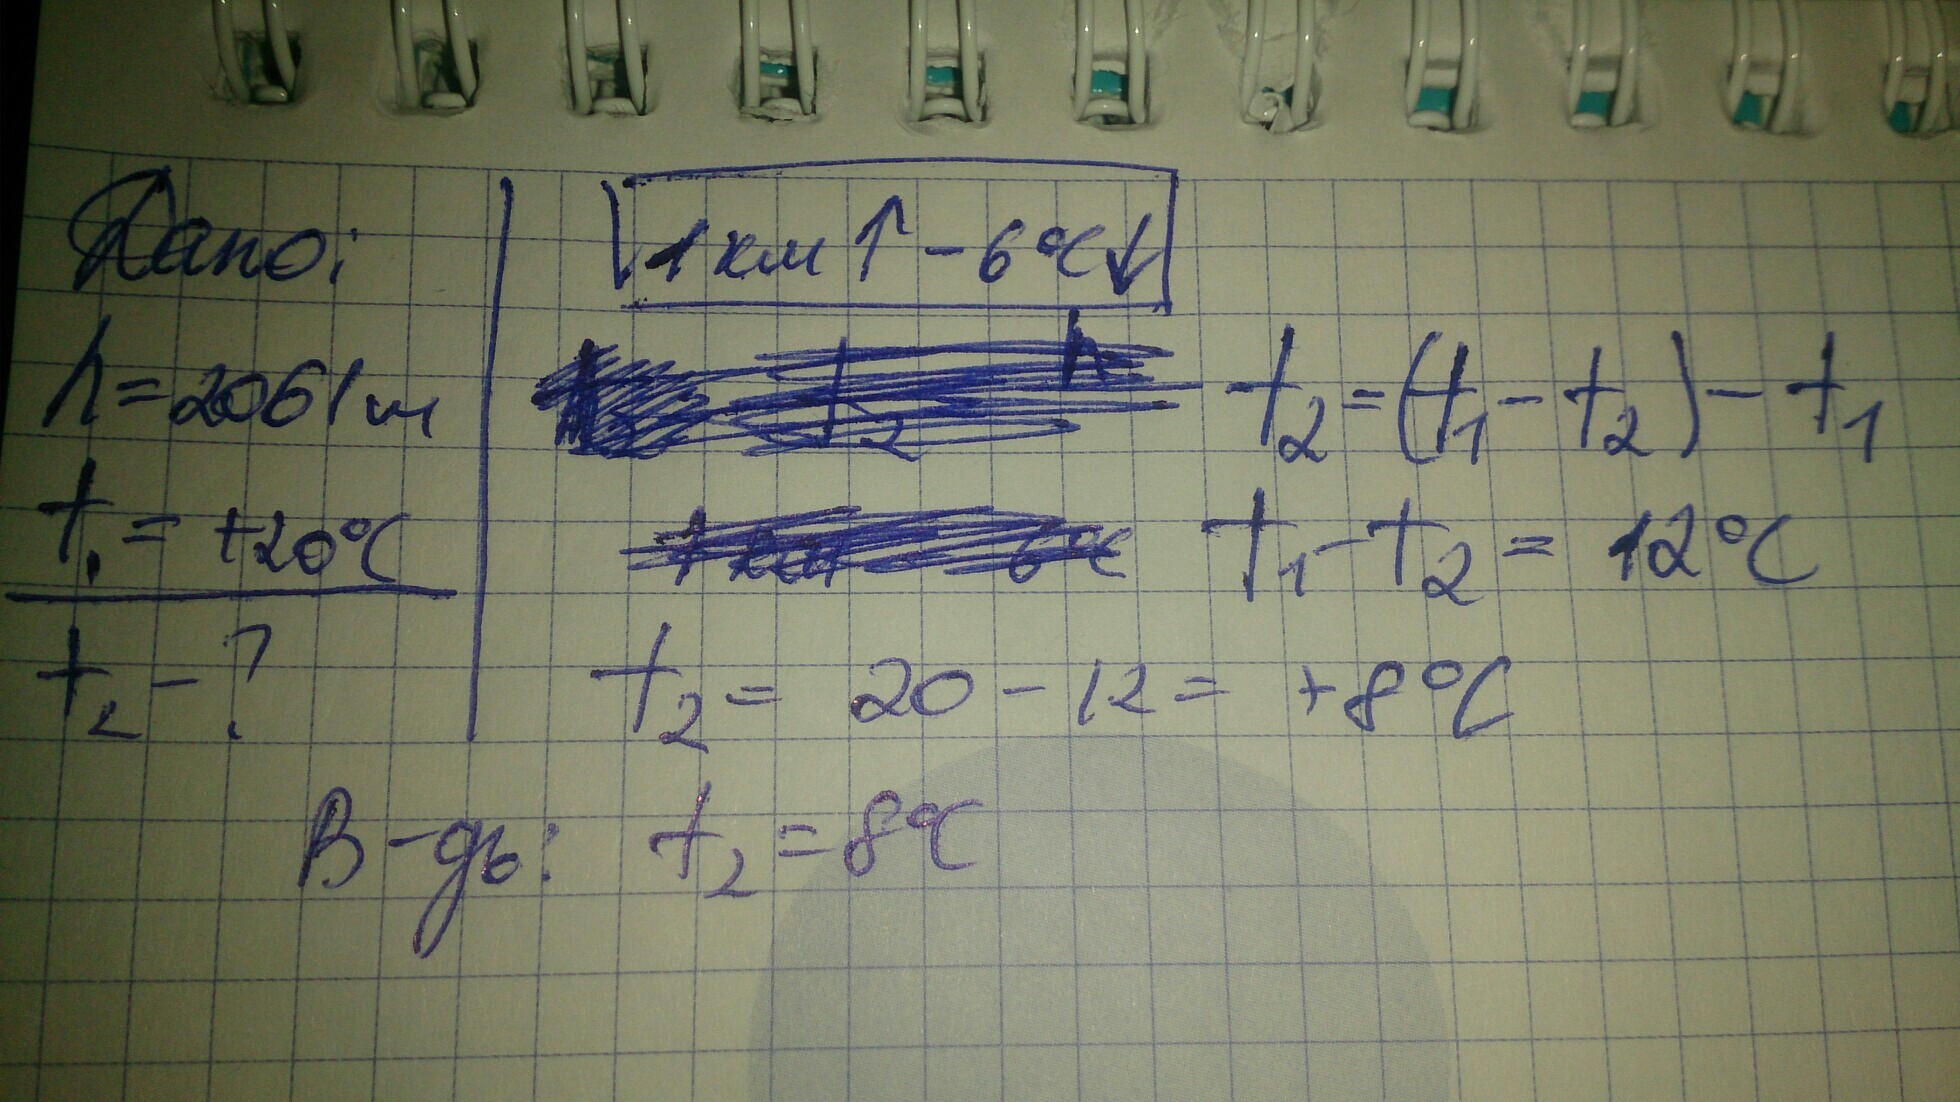 Дано:
h = 2061 м
t₁ = +20°C
t₂ - ?
1 км ↑ - 6°C ↓
t₂ = (t₁ - t₂) - t₁
t₁ - t₂ = 12°C
t₂ = 20 - 12 = +8°C
В-дь: t₂ = 8°C